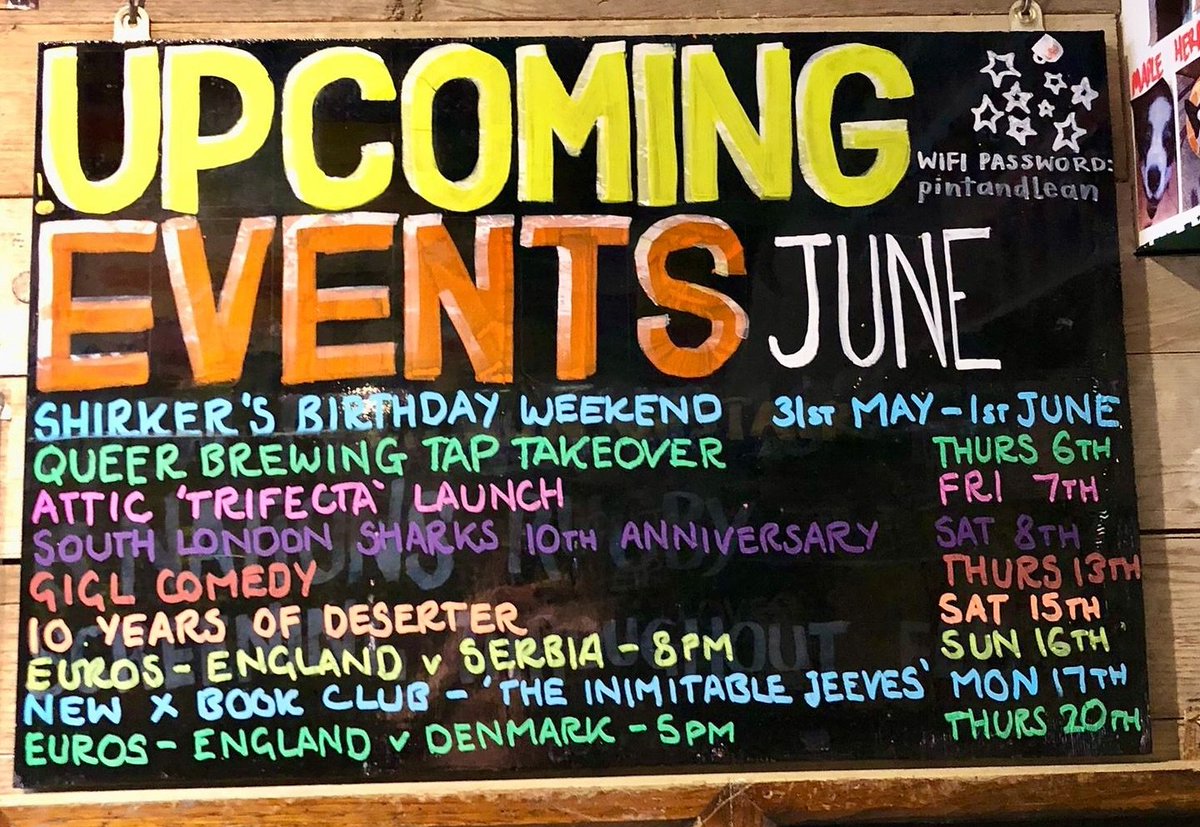 UPCOMING
WIFI PASSWORD:
pintandlean
EVENTS JUNE
SHIRKER'S BIRTHDAY WEEKEND 31ST MAY - 1ST JUNE
QUEER BREWING TAP TAKEOVER THURS 6TH
ATTIC 'TRIFECTA' LAUNCH FRI 7TH
SOUTH LONDON SHARKS 10TH ANNIVERSARY SAT 8TH
GIGL COMEDY THURS 13TH
10 YEARS OF DESERTER SAT 15TH
EUROS - ENGLAND v SERBIA - 8PM SUN 16TH
NEW X BOOK CLUB - 'THE INIMITABLE JEEVES' MON 17TH
EUROS - ENGLAND v DENMARK - 5PM THURS 20TH
MAPLE